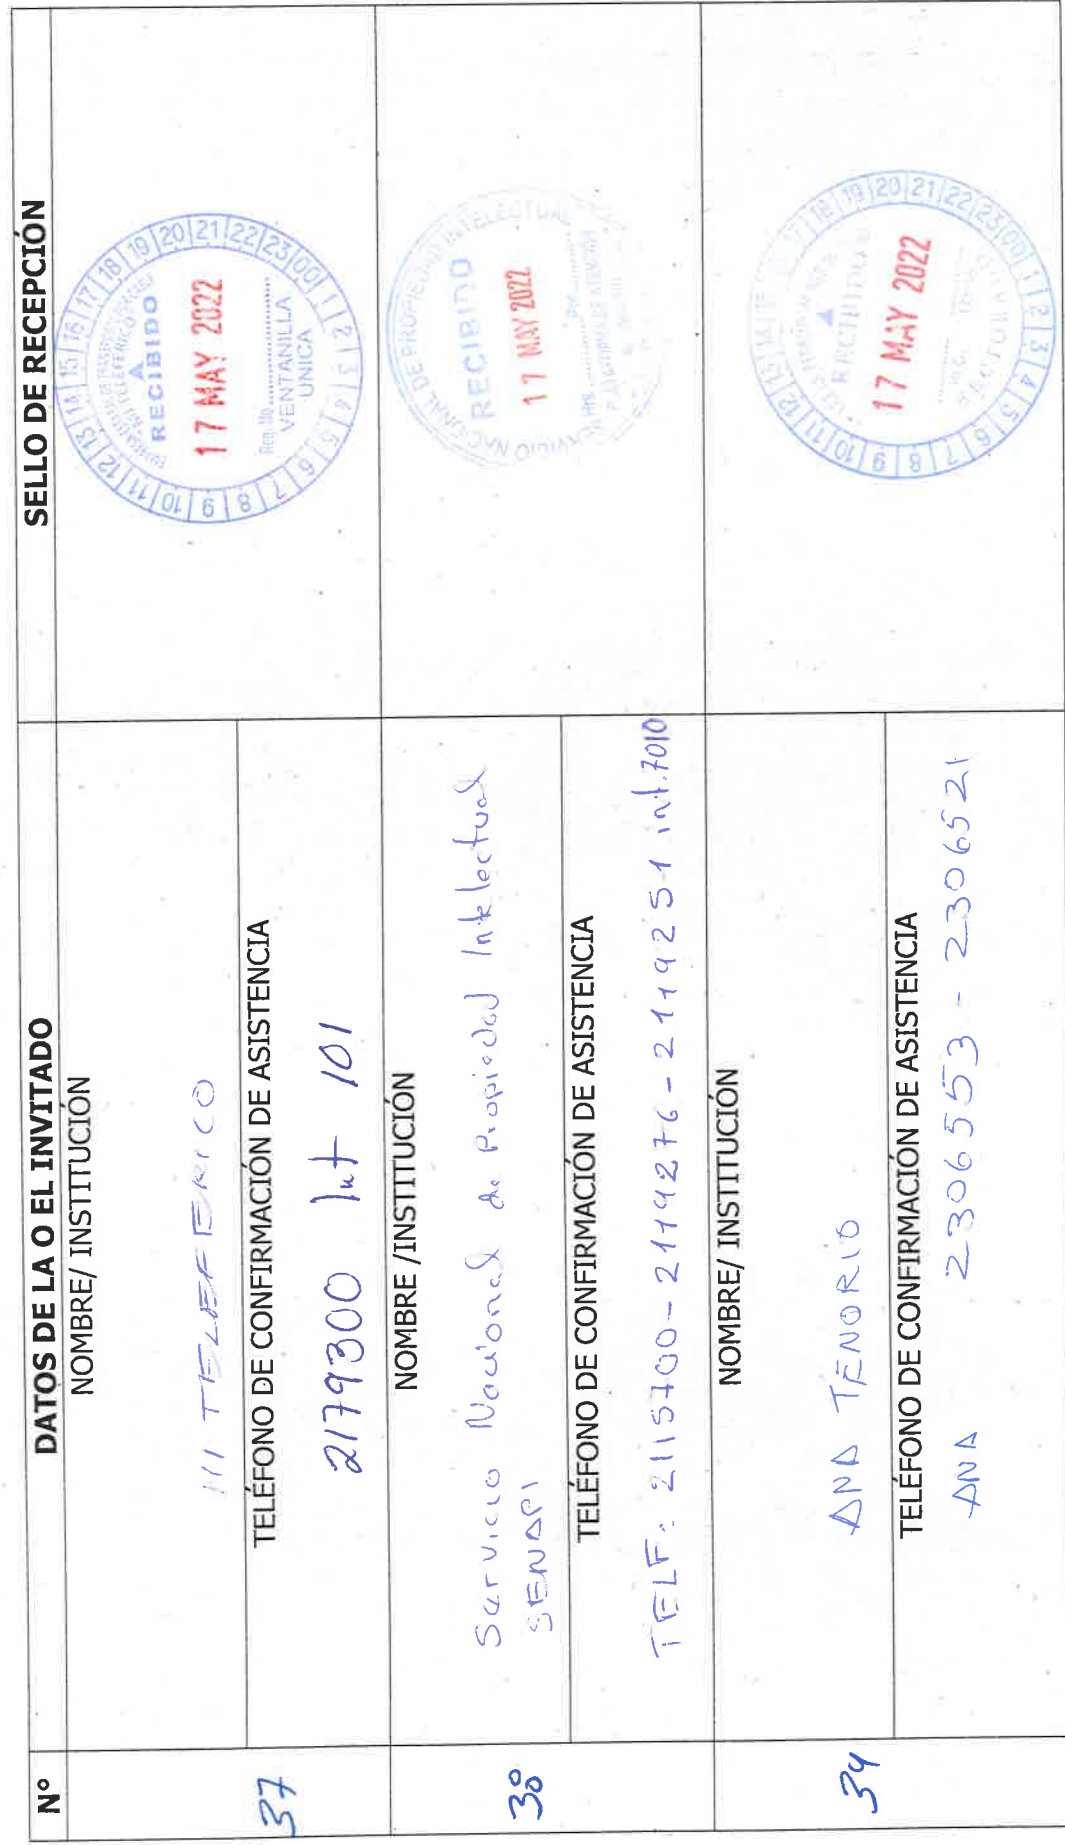 N° DATOS DE LA O EL INVITADO SELLO DE RECEPCIÓN
37
NOMBRE/ INSTITUCIÓN
TELEFERICO
TELÉFONO DE CONFIRMACIÓN DE ASISTENCIA
2179300 Int 101
RECIBIDO
17 MAY 2022
VENTANILLA
UNICA
NOMBRE /INSTITUCIÓN
Servicio Nacional de Propiedad Intelectual
SENAPI
TELÉFONO DE CONFIRMACIÓN DE ASISTENCIA
TELF: 2115700-2119276-2119251 int.7010
SERVICIO NACIONAL DE PROPIEDAD INTELECTUAL
RECIBIDO
17 MAY 2022
NOMBRE/ INSTITUCIÓN
ANA TENORIO
TELÉFONO DE CONFIRMACIÓN DE ASISTENCIA
ANA 2306553 - 2306521
34
RECIBIDO
17 MAY 2022